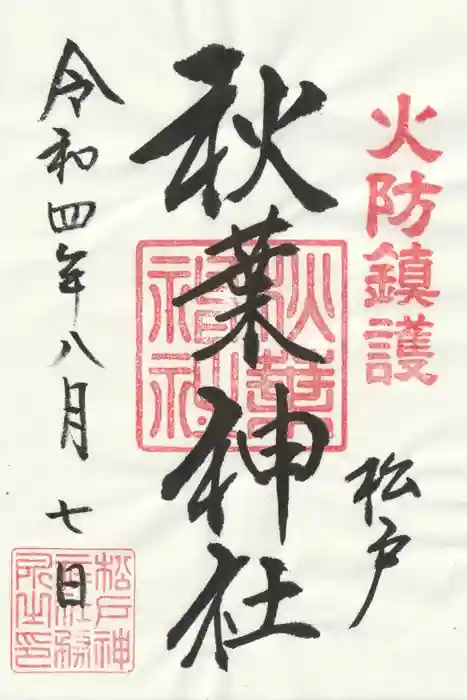 火防鎮護
松戸
秋葉神社
秋葉神社
令和四年八月七日
松戸神